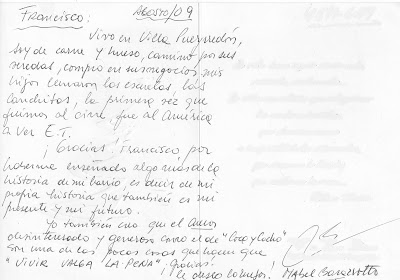 Francisco: AGOSTO/09
Vivo en Villa Pueyrredón,
soy de carne y hueso, camino por sus
veredas, compro en sus negocios, mis
hijos llenaron las escuelas, las
canchitas, la primera vez que
fuimos al cine, fue al América
a ver E.T.
¡Gracias! Francisco por
haberme enseñado algo más de la
historia de mi bario, es decir de mi
propia historia que también es mi
presente y mi futuro.
Yo también creo que el amor
desinteresado y generoso como el de "Coco y Cacho"
son una de las pocas cosas que hacen que
"VIVIR VALGA LA PENA" ¡Gracias!
¡Te deseo lo mejor! Mabel